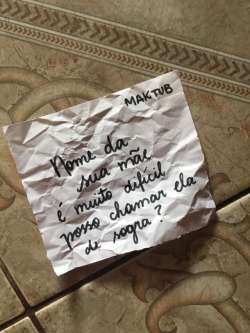 MAKTUB
Nome da
sua mãe
é muito difícil
posso chamar ela
de sogra?